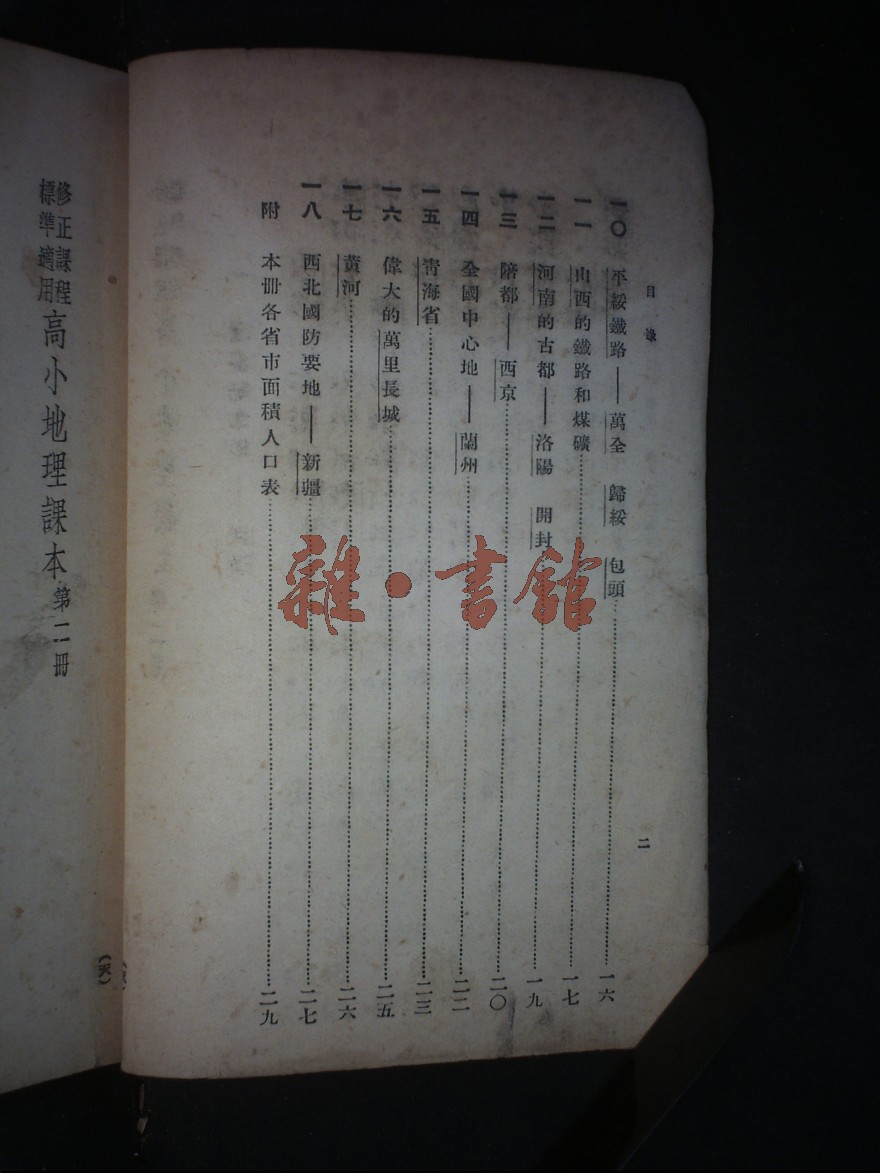 目錄
一〇 平綏鐵路——萬全 歸綏 包頭……一六
一一 山西的鐵路和煤礦……一七
一二 河南的古都——洛陽 開封……一九
一三 陪都——西京……二〇
一四 全國中心地——蘭州……二二
一五 青海省……二三
一六 偉大的萬里長城……二五
一七 黃河……二六
一八 西北國防要地——新疆……二七
附 本冊各省市面積人口表……二九
二
修正課程標準適用 高小地理課本 第二冊
雜·書館